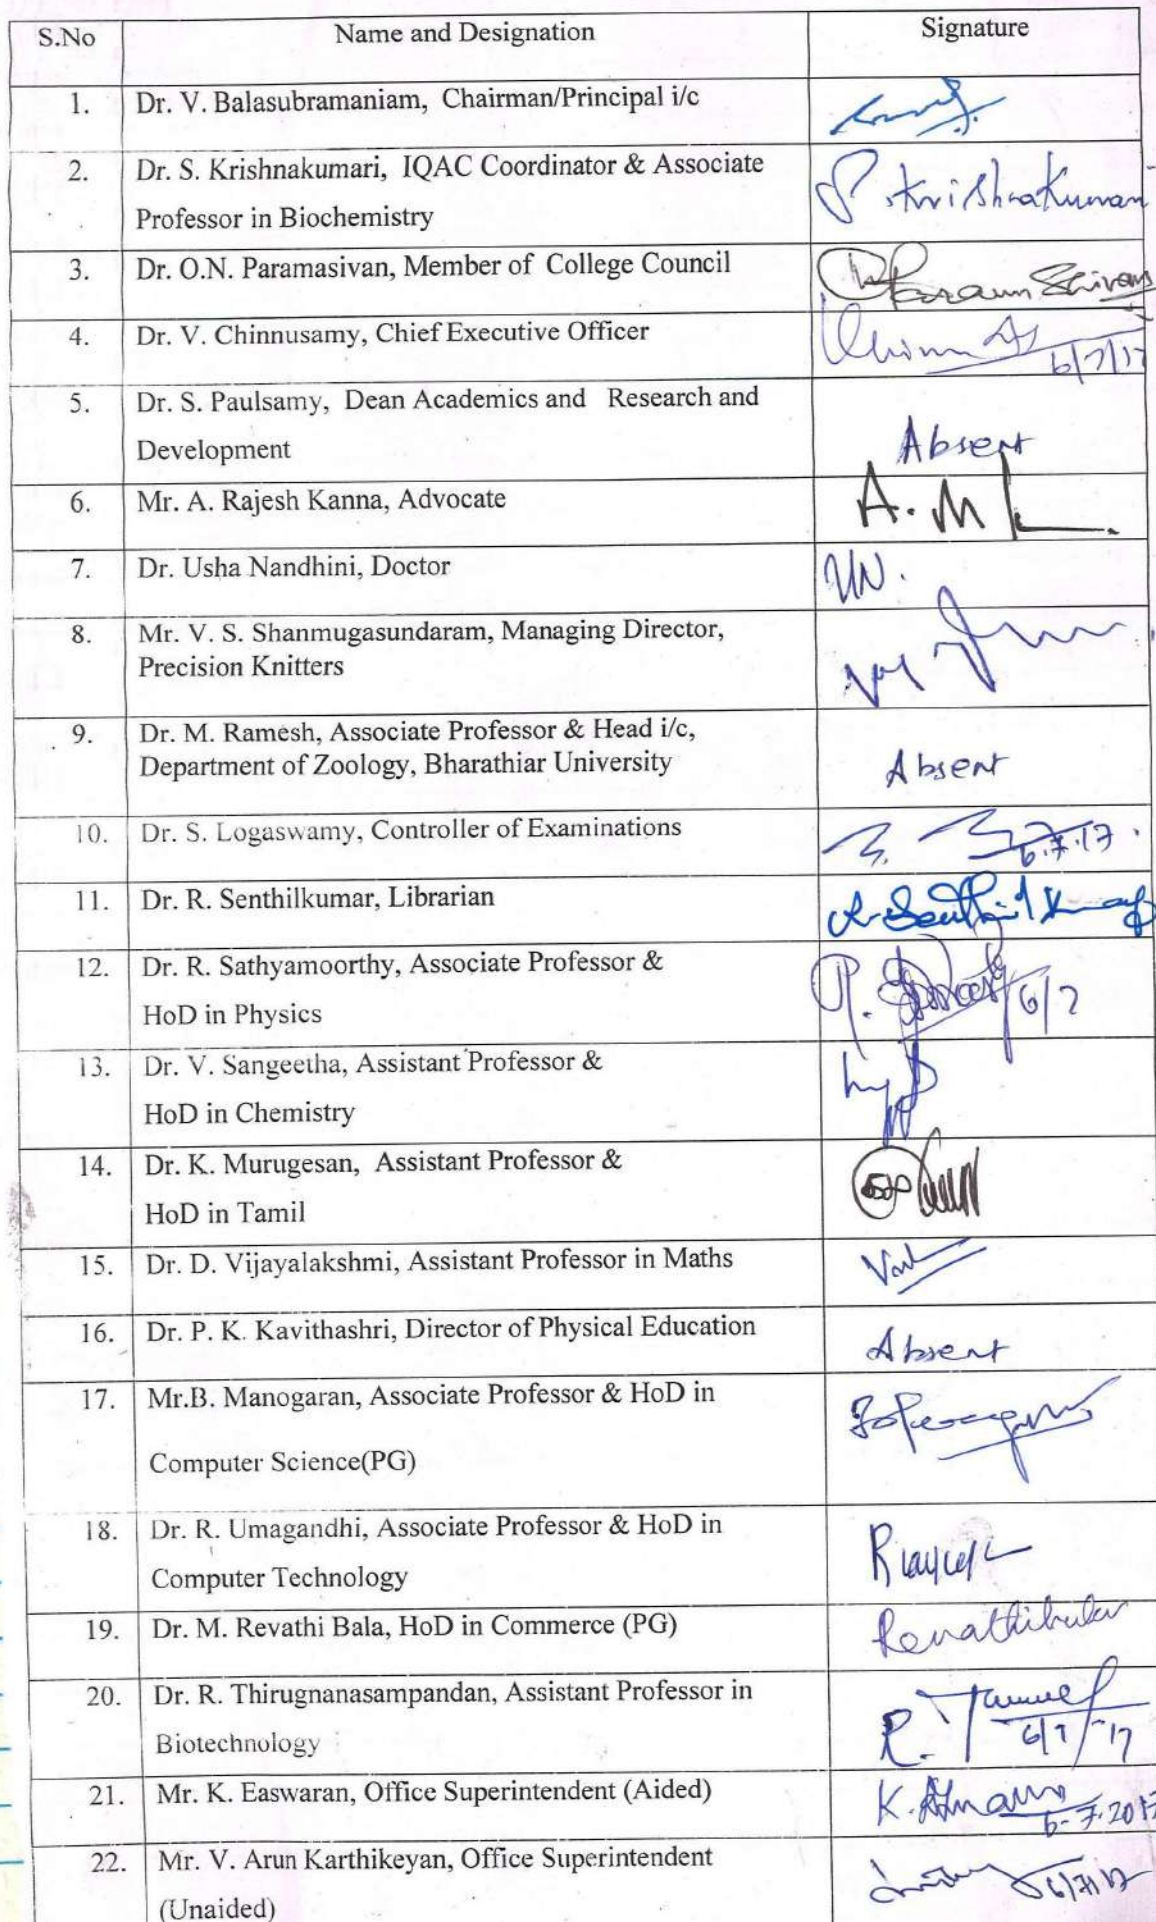 S.No Name and Designation Signature
1. Dr. V. Balasubramaniam, Chairman/Principal i/c
2. Dr. S. Krishnakumari, IQAC Coordinator & Associate
Professor in Biochemistry
S. KrishnaKumari
3. Dr. O.N. Paramasivan, Member of College Council
4. Dr. V. Chinnusamy, Chief Executive Officer
6/7/17
5. Dr. S. Paulsamy, Dean Academics and Research and
Development
Absent
6. Mr. A. Rajesh Kanna, Advocate
7. Dr. Usha Nandhini, Doctor UN.
8. Mr. V. S. Shanmugasundaram, Managing Director,
Precision Knitters
9. Dr. M. Ramesh, Associate Professor & Head i/c,
Department of Zoology, Bharathiar University
Absent
10. Dr. S. Logaswamy, Controller of Examinations
6.7.17
11. Dr. R. Senthilkumar, Librarian
12. Dr. R. Sathyamoorthy, Associate Professor &
HoD in Physics
6/7
13. Dr. V. Sangeetha, Assistant Professor &
HoD in Chemistry
14. Dr. K. Murugesan, Assistant Professor &
HoD in Tamil
15. Dr. D. Vijayalakshmi, Assistant Professor in Maths
16. Dr. P. K. Kavithashri, Director of Physical Education
Absent
17. Mr.B. Manogaran, Associate Professor & HoD in
Computer Science(PG)
18. Dr. R. Umagandhi, Associate Professor & HoD in
Computer Technology
19. Dr. M. Revathi Bala, HoD in Commerce (PG)
Revathibala
20. Dr. R. Thirugnanasampandan, Assistant Professor in
Biotechnology
6/7/17
21. Mr. K. Easwaran, Office Superintendent (Aided)
6-7-2017
22. Mr. V. Arun Karthikeyan, Office Superintendent
(Unaided)
6/7/17